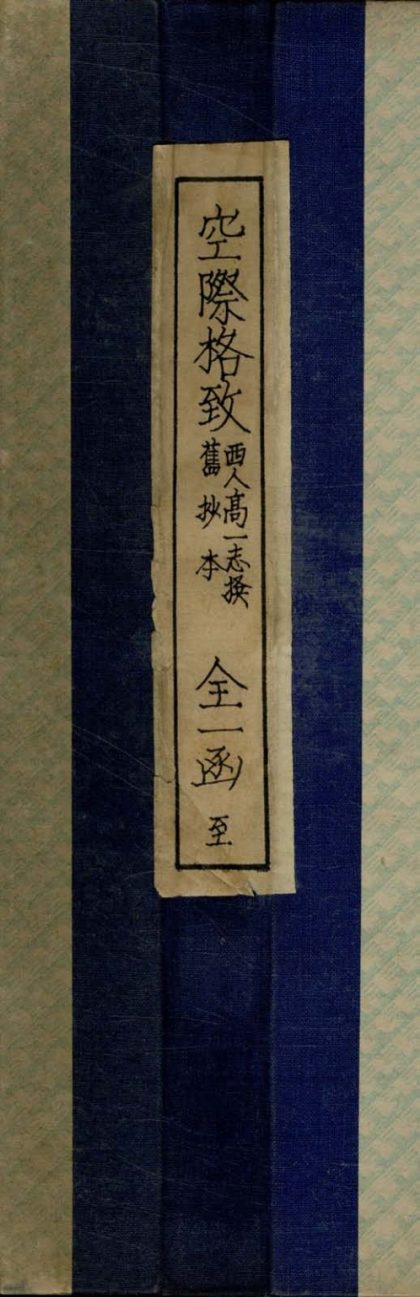 空際格致
西人高一志撰
舊抄本
全一函
至